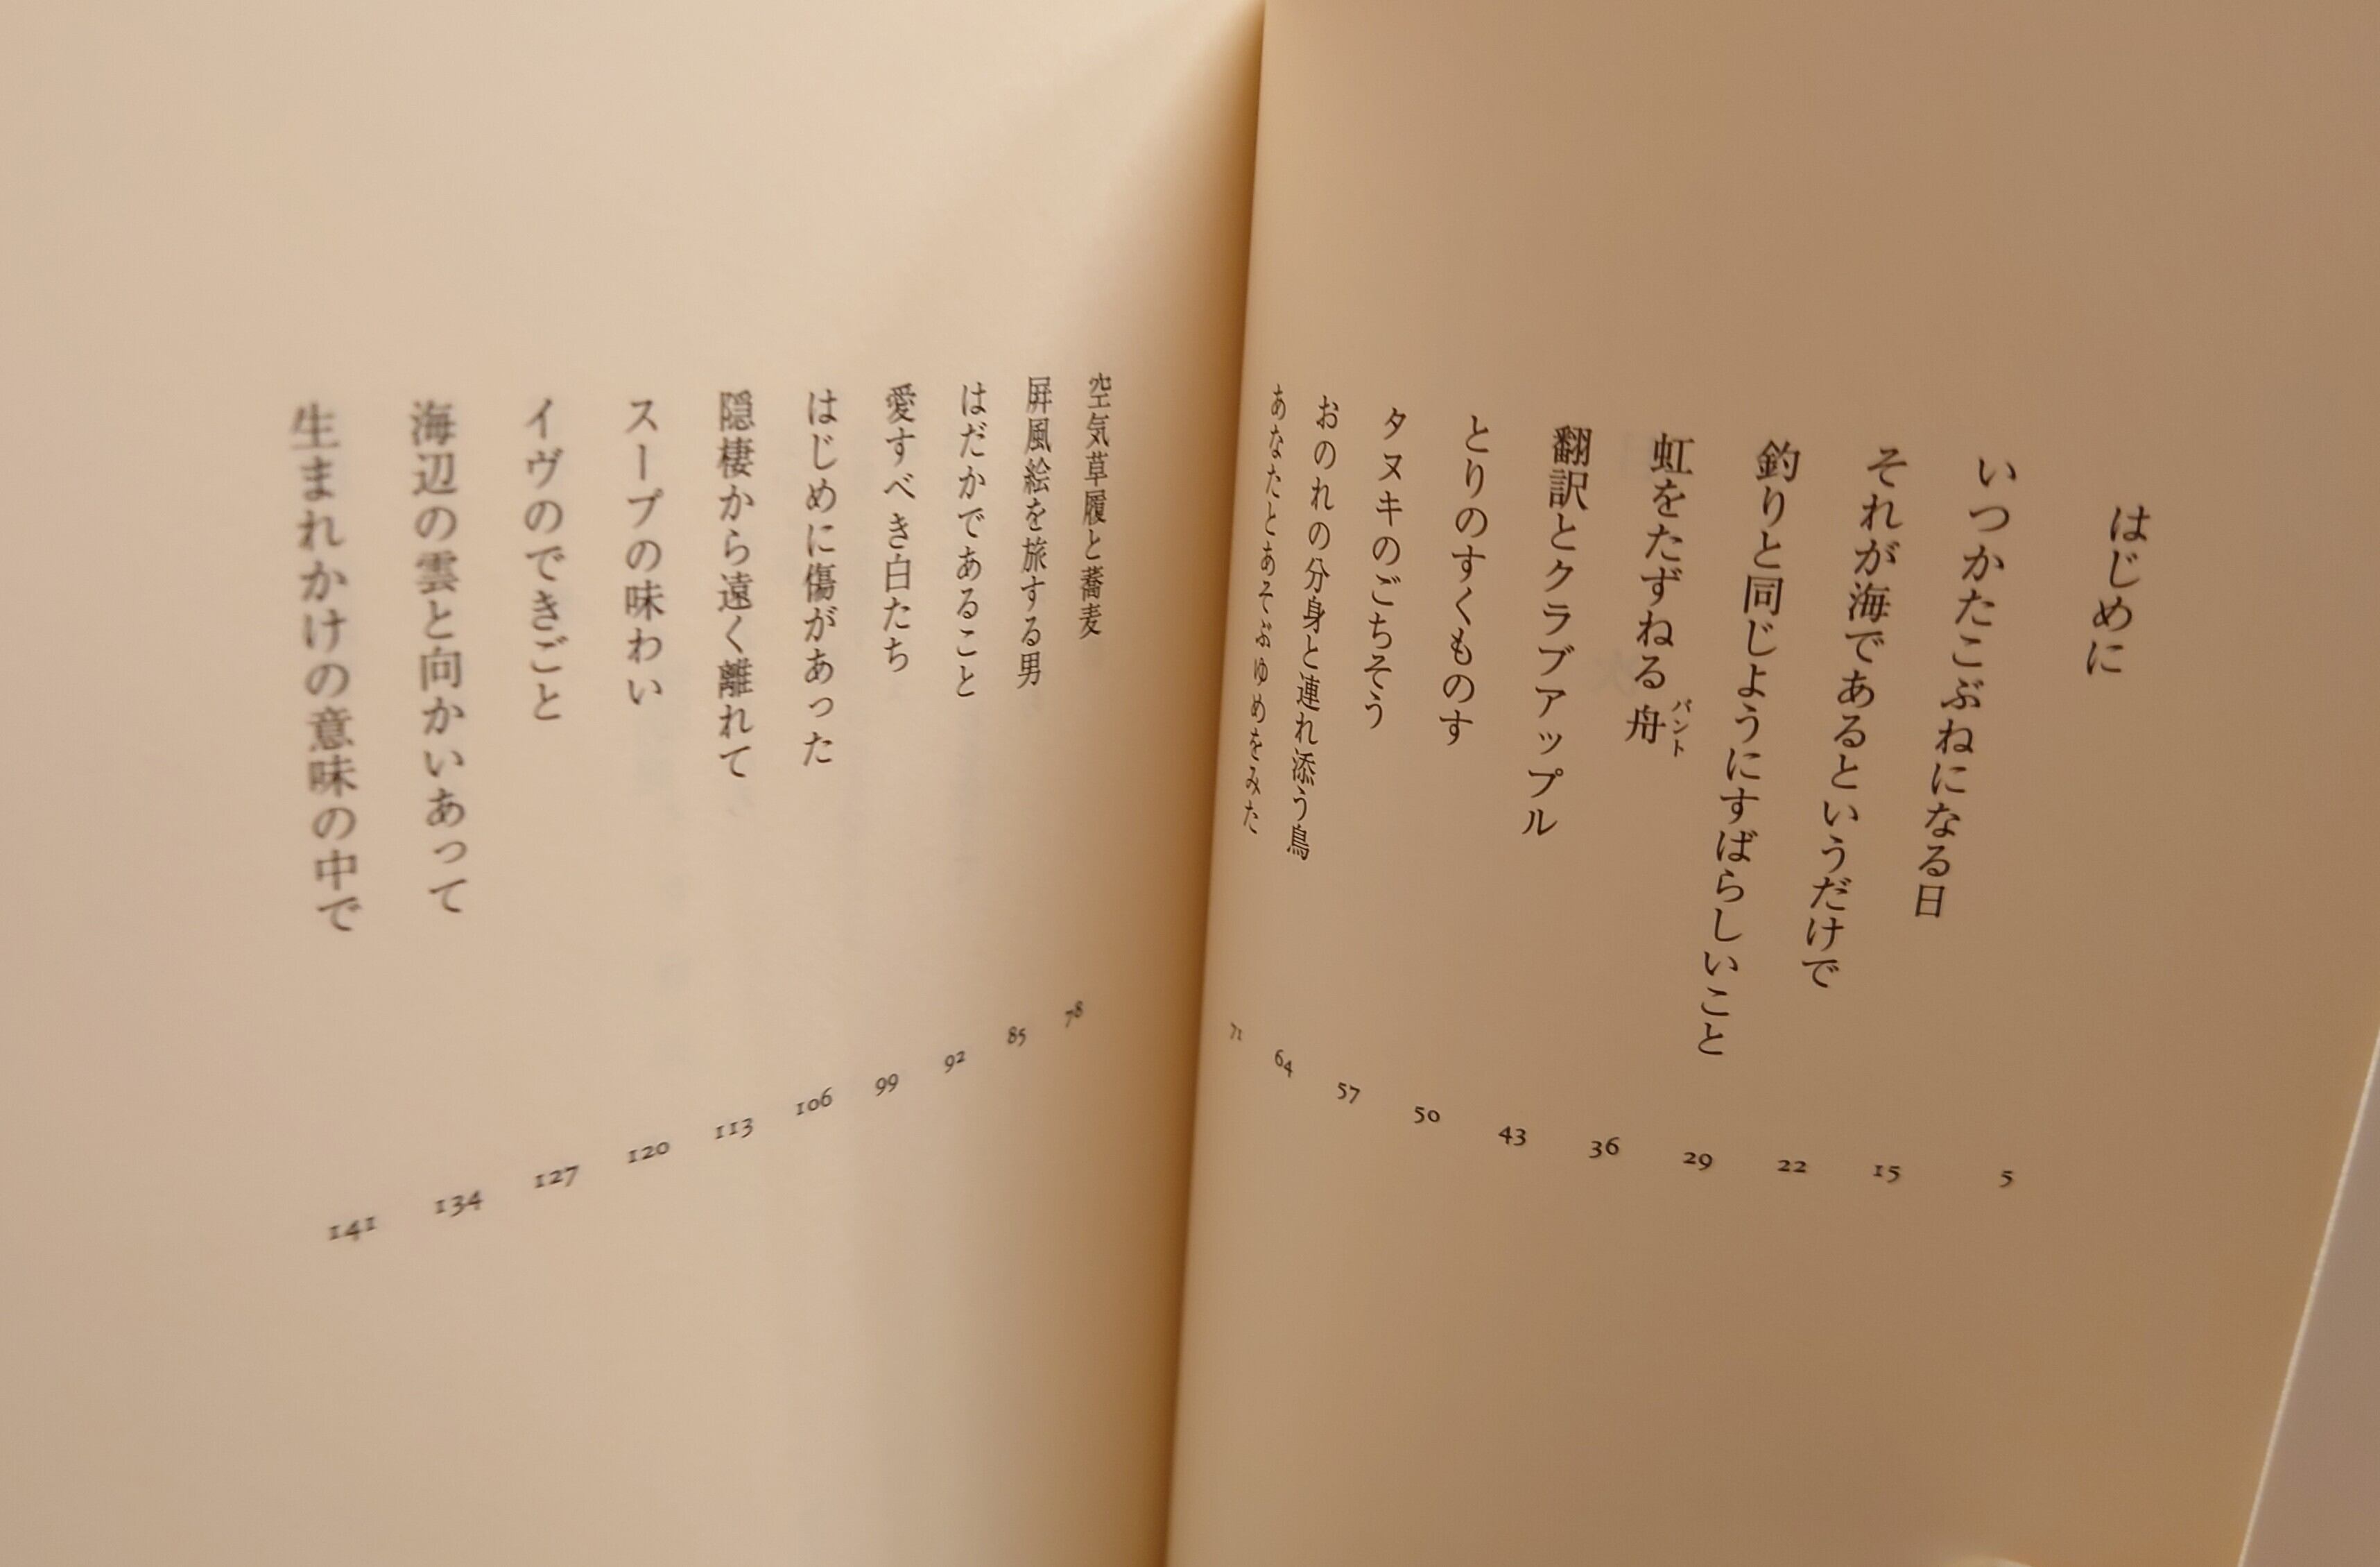 はじめに 5
いつかたこぶねになる日 15
それが海であるというだけで 22
釣りと同じようにすばらしいこと 29
虹をたずねる舟 36
パント
翻訳とクラブアップル 43
とりのすくものす 50
タヌキのごちそう 57
おのれの分身と連れ添う鳥 64
あなたとあそぶゆめをみた 71
空気草履と蕎麦 78
屛風絵を旅する男 85
はだかであること 92
愛すべき白たち 99
はじめに傷があった 106
隠棲から遠く離れて 113
スープの味わい 120
イヴのできごと 127
海辺の雲と向かいあって 134
生まれかけの意味の中で 141